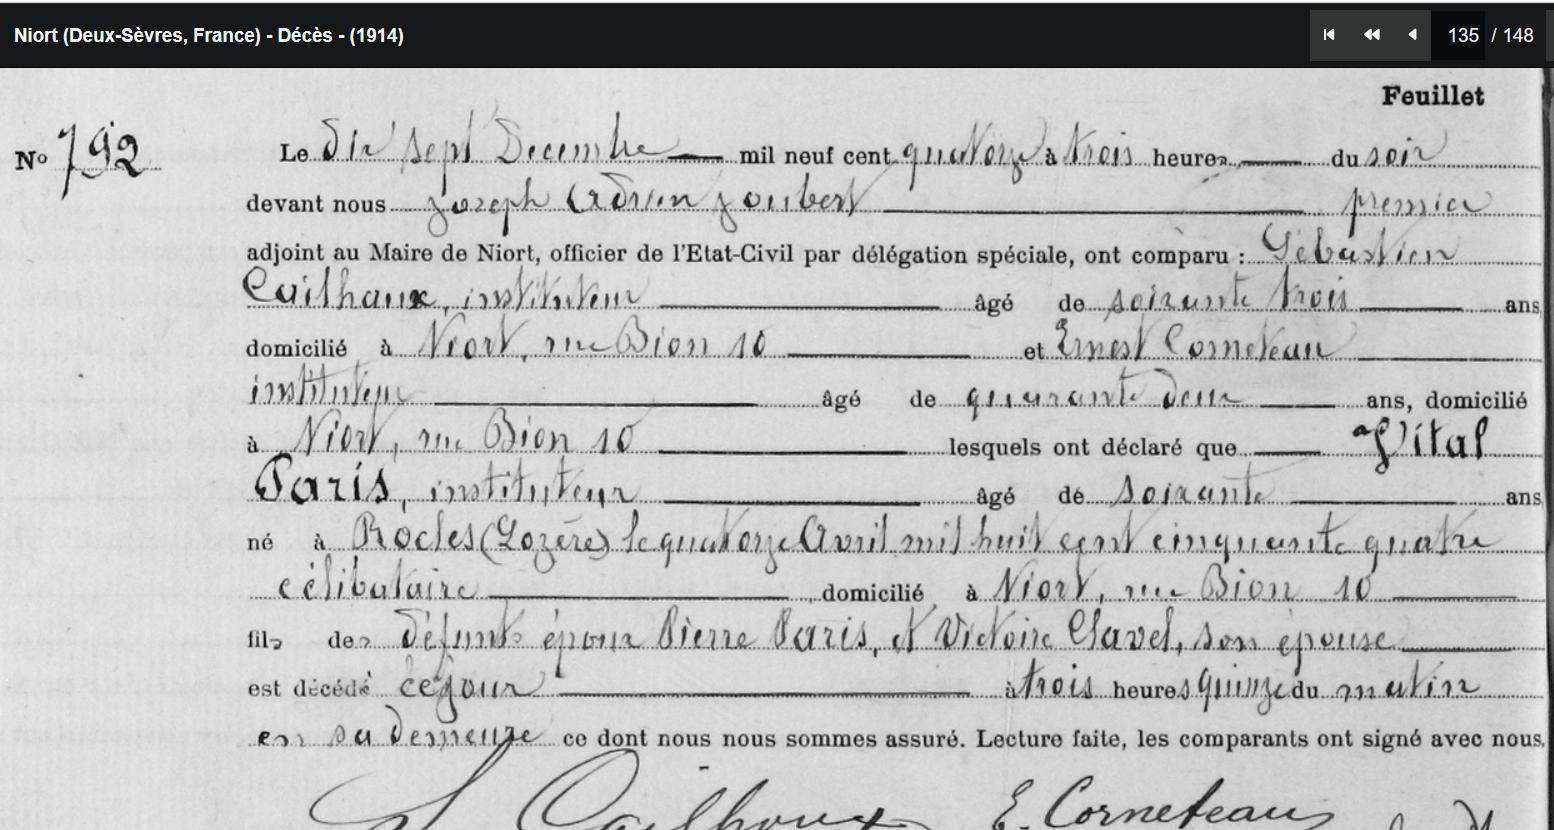 Niort (Deux-Sèvres, France) - Décès - (1914) 135 / 148
Feuillet
No 792 Le dix sept Decembre mil neuf cent quatorze à trois heures du soir
devant nous Joseph Adrien Joubert premier
adjoint au Maire de Niort, officier de l'Etat-Civil par délégation spéciale, ont comparu : Sébastien
Cailhaux, instituteur âgé de soixante trois ans
domicilié à Niort, rue Bion 10 et Ernest Corneteau
instituteur âgé de quarante deux ans, domicilié
à Niort, rue Bion 10 lesquels ont déclaré que Vital
Paris, instituteur âgé de soixante ans
né à Rocles (Lozère) le quatorze Avril mil huit cent cinquante quatre
célibataire domicilié à Niort, rue Bion 10
fils des défunts époux Pierre Paris, et Victoire Clavel, son épouse
est décédé ce jour à trois heures quinze du matin
en sa demeure ce dont nous nous sommes assuré. Lecture faite, les comparants ont signé avec nous.
S. Cailhaux E. Corneteau